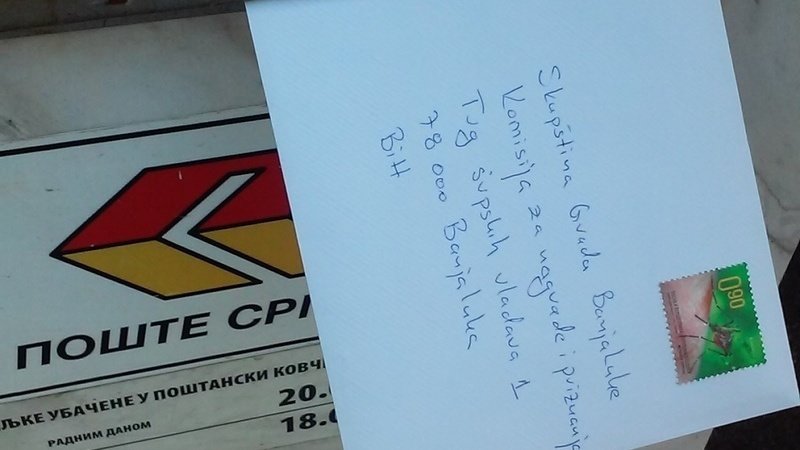 ПОШТЕ СРП
ЉКЕ УБАЧЕНЕ У ПОШТАНСКИ КОВЧ
20.
РАДНИМ ДАНОМ
18.0
Skupština Grada Banjaluke
Komisija za nagrade i priznanja
Trg srpskih vladara 1
78 000 Banjaluka
BiH
0,90